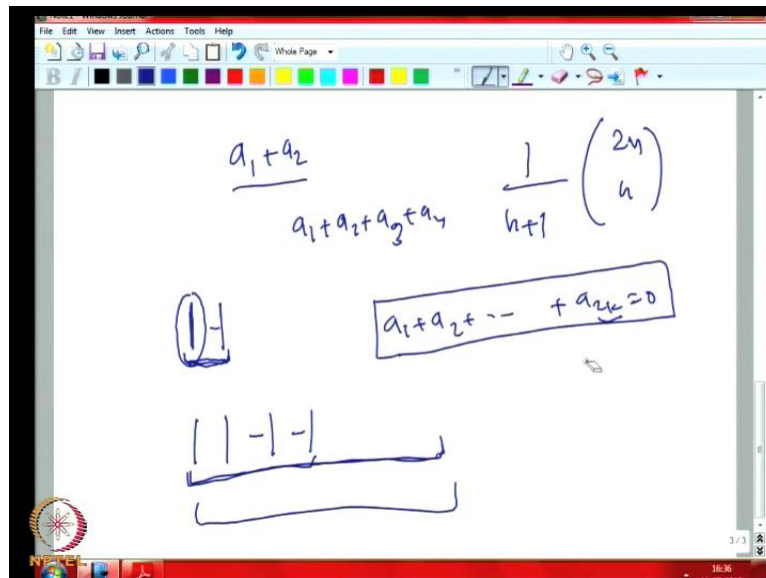 Note1 - Windows Journal
File Edit View Insert Actions Tools Help
Whole Page
B I
a₁+a₂
a₁+a₂+a₃+a₄
1/(n+1) (2n n)
1 -1
a₁+a₂+ -- +a₂ₖ=0
1 1 -1 -1
3/3
NPTEL
16:36